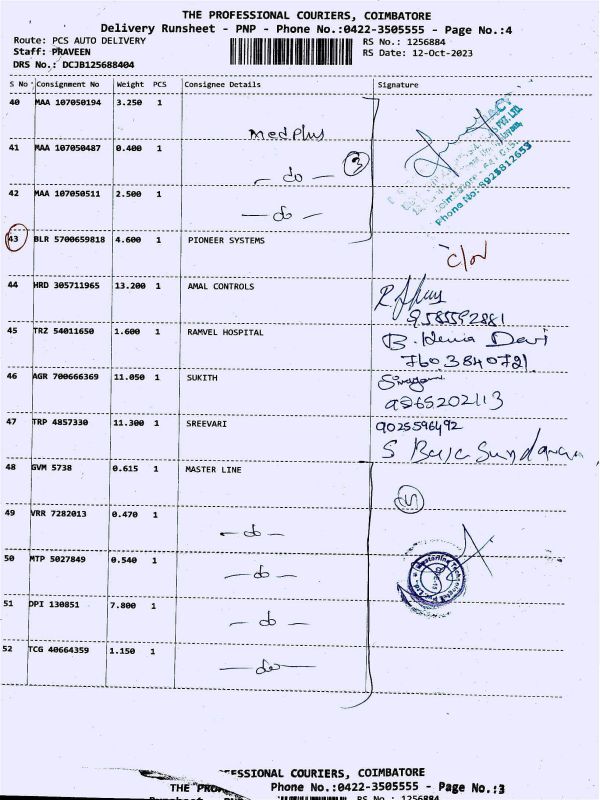 THE PROFESSIONAL COURIERS, COIMBATORE
Delivery Runsheet - PNP - Phone No.:0422-3505555 - Page No.:4
Route: PCS AUTO DELIVERY
RS No.: 1256884
Staff: PRAVEEN
RS Date: 12-Oct-2023
DRS No.: DCJB125688404
S No Consignment No Weight PCS Consignee Details Signature
40 MAA 107050194 3.250 1 Medplus
41 MAA 107050487 0.400 1 - do -
3
42 MAA 107050511 2.500 1 - do -
Phone No: 8925812653
43 BLR 5700659818 4.600 1 PIONEER SYSTEMS
44 HRD 305711965 13.200 1 AMAL CONTROLS
9585592881
45 TRZ 54011650 1.600 1 RAMVEL HOSPITAL B. Hema Devi
7603840721
46 AGR 700666369 11.050 1 SUKITH
9865202113
47 TRP 4857330 11.300 1 SREEVARI 9025596492
S Bala Sundaram
48 GVM 5738 0.615 1 MASTER LINE
49 VRR 7282013 0.470 1 - do -
50 MTP 5027849 0.540 1 - do -
51 DPI 130851 7.800 1 - do -
52 TCG 40664359 1.150 1 - do -
ESSIONAL COURIERS, COIMBATORE
THE "PRO Phone No.:0422-3505555 - Page No.:3
RS No.: 1256884